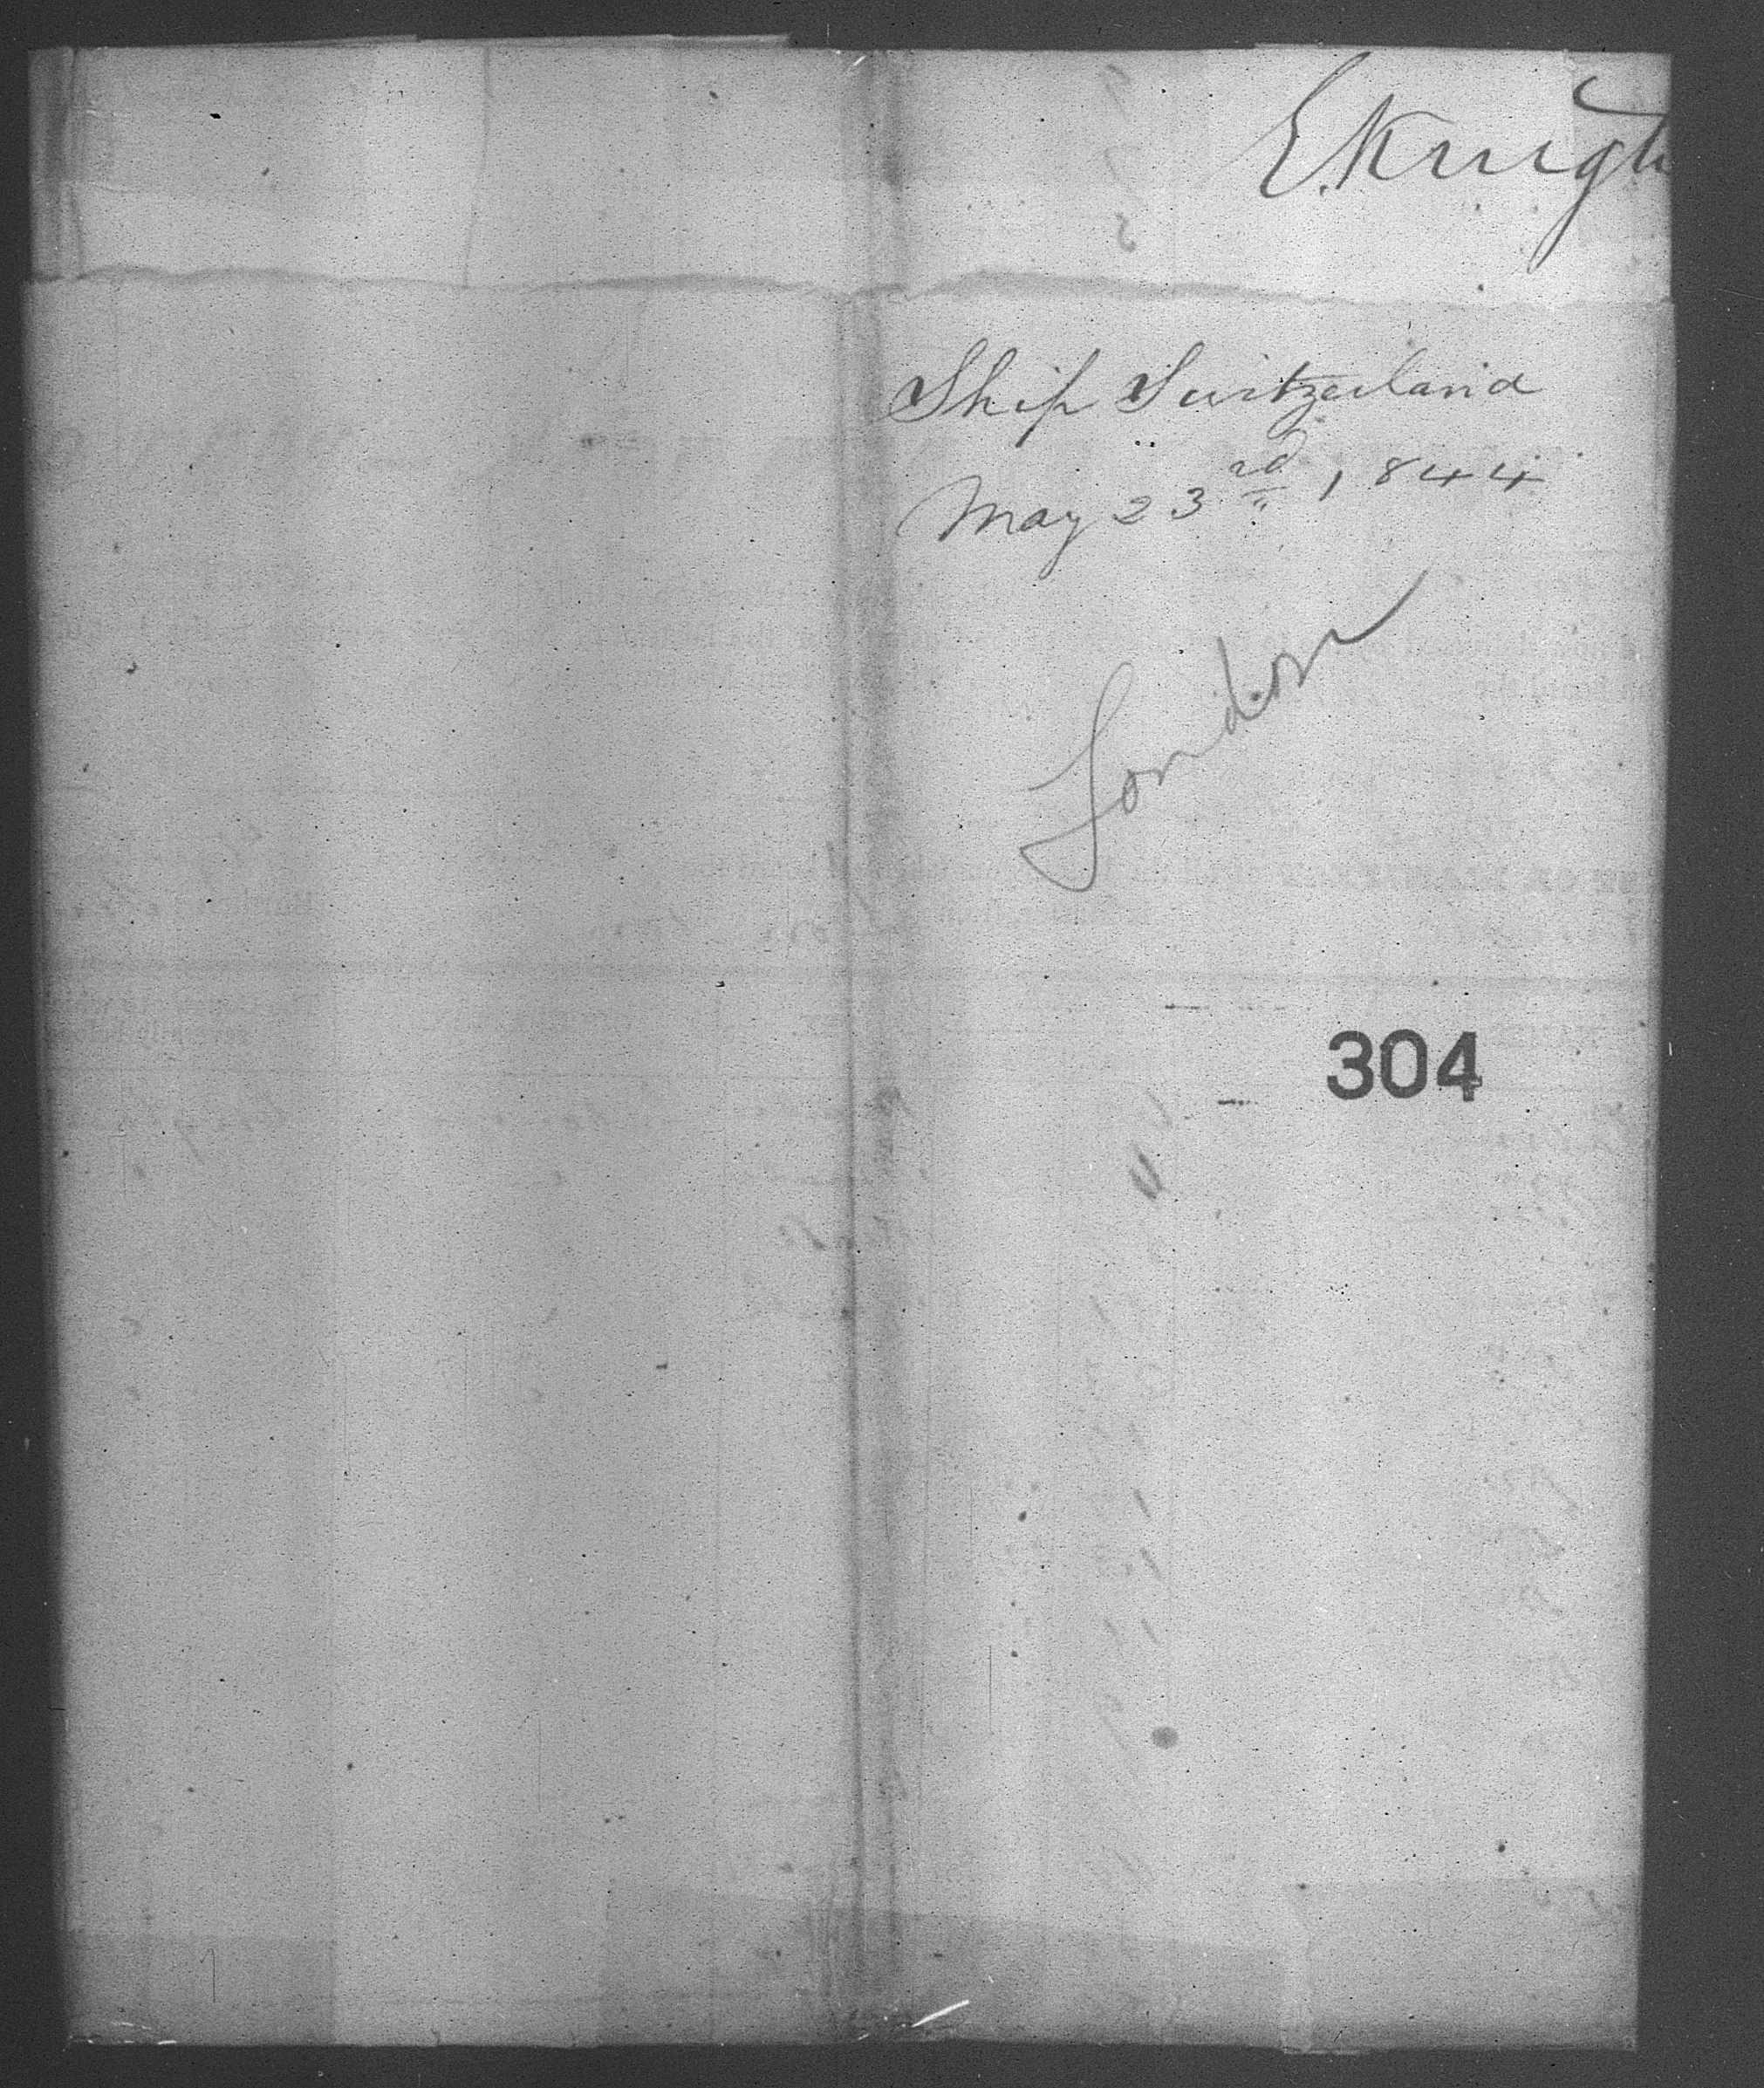 E. Knight
Ship Switzerland
May 23rd 1844
London
304